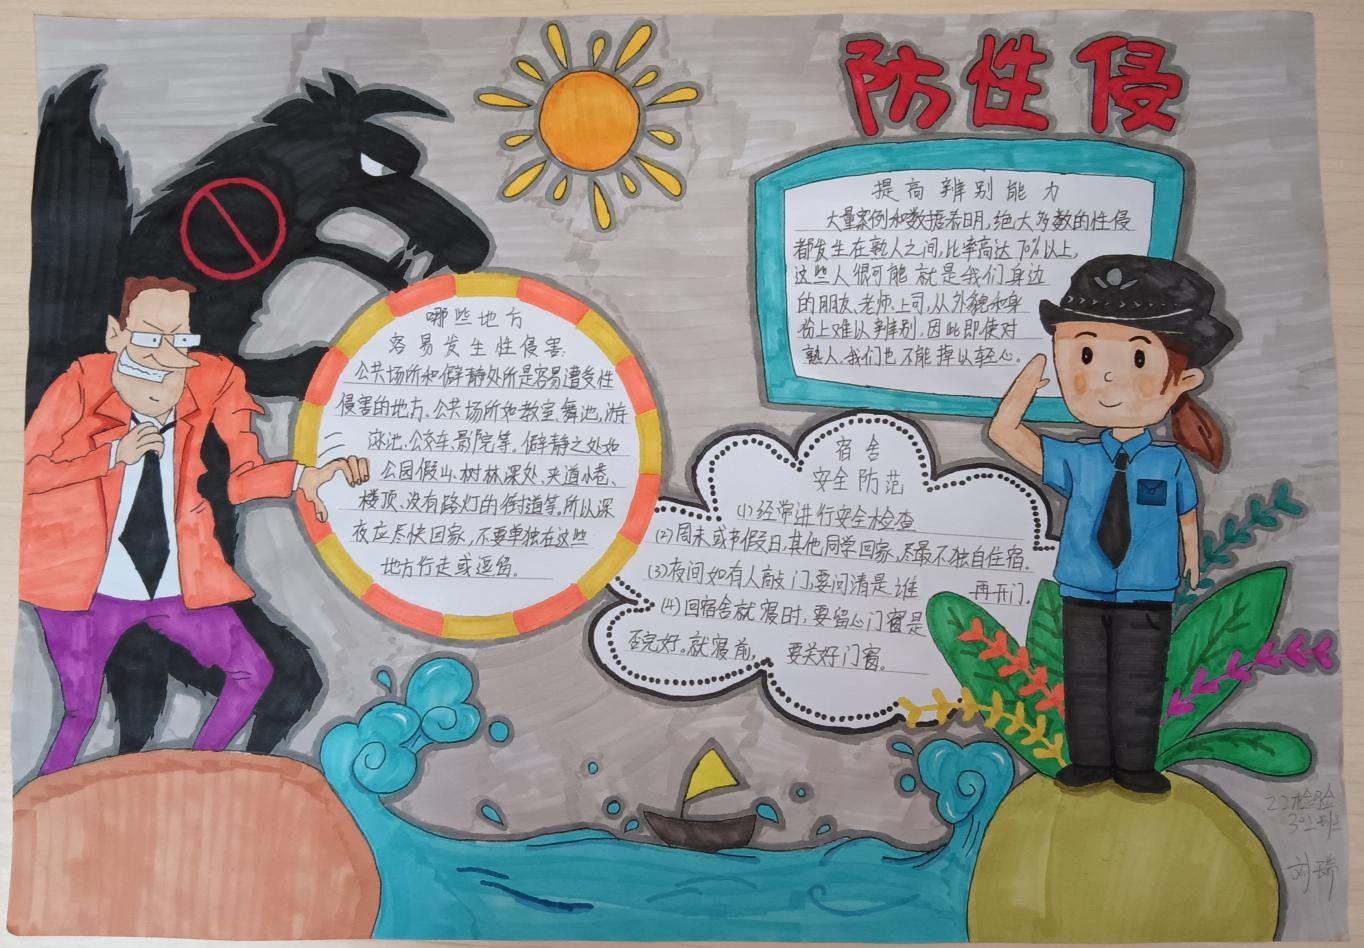 防性侵
提高辨别能力
大量案例和数据表明,绝大多数的性侵
都发生在熟人之间,比率高达70%以上,
这些人很可能就是我们身边
的朋友、老师、上司,从外貌和身
份上难以辨别,因此即使对
熟人,我们也不能掉以轻心。
哪些地方
容易发生性侵害:
公共场所和僻静处所是容易遭受性
侵害的地方。公共场所如教室、舞池、游
泳池、公交车、影院等。僻静之处如
公园假山、树林深处、夹道小巷、
楼顶、没有路灯的街道等。所以深
夜应尽快回家,不要单独在这些
地方行走或逗留。
宿舍
安全防范
(1)经常进行安全检查
(2)周末或节假日,其他同学回家,尽最不独自住宿。
(3)夜间如有人敲门,要问清是谁 再开门。
(4)回宿舍就寝时,要留心门窗是
否完好。就寝前, 要关好门窗。
22检验
302班
刘瑞